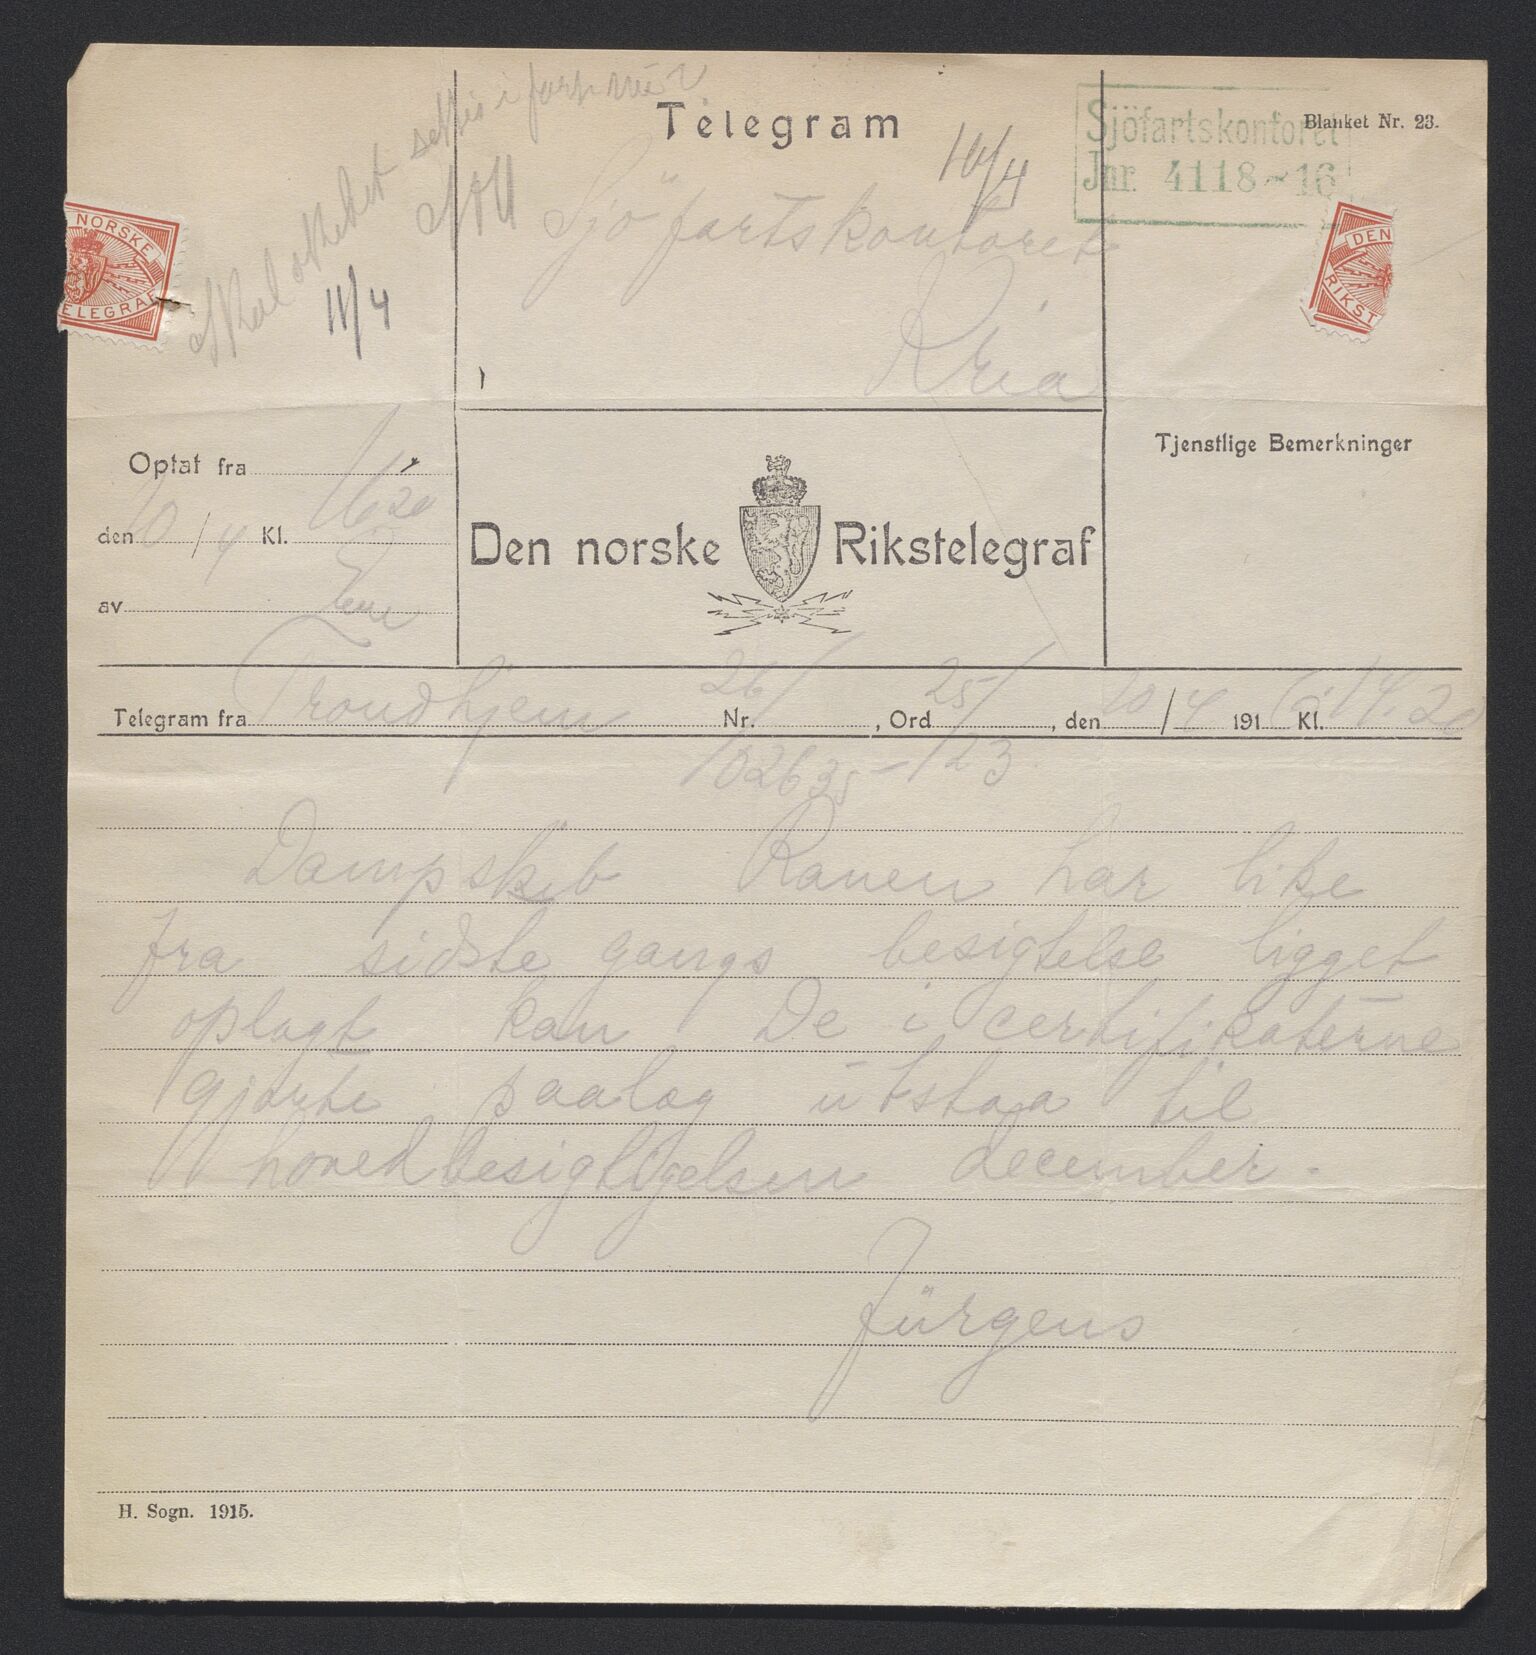 Telegram
Blanket Nr. 23.
Sjöfartskontoret
Jnr. 4118-16
10/4
NORSKE
TELEGRAF
DEN
RIKST
11/4
Sjöfartskontoret
Kria
Optat fra
den 10/4 Kl. 16 20
av
Den norske Rikstelegraf
Tjenstlige Bemerkninger
Telegram fra Trondhjem Nr. 26/ , Ord 25/ , den 10/4 1916 Kl. 14.20
Dampskib Ranen har like
fra sidste gangs besigtelse ligget
oplagt kan De i certifikaterne
gjorte paalæg utstaa til
hovedbesigtigelsen december.
Jürgens
H. Sogn. 1915.